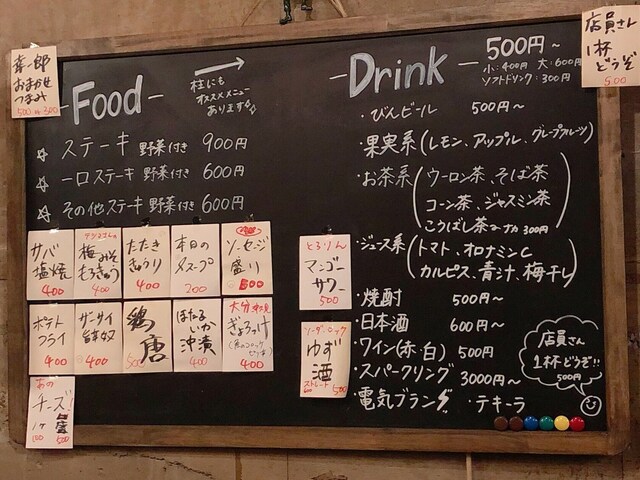 幸一郎
おまかせ
つまみ
-Food-
柱にも
オススメメニュー
あります
☆ ステーキ 野菜付き 900円
☆ 一口ステーキ 野菜付き 600円
☆ その他ステーキ 野菜付き 600円
サバ
塩焼
400
梅みそ
もろきゅう
400
たたき
きゅうり
400
本日の
スープ
200
ソーセージ
盛り
500
ポテト
フライ
400
ザーサイ
奴
400
鶏
唐
500
ほたる
いか
沖漬
400
大分
ぎょろっけ
(魚のコロッケ
400
あの
チーズ!
1ヶ
100
盛
500
-Drink-
500円~
小:400円 大:600円
ソフトドリンク:300円
店員さん
1杯
どうぞ
500
・びんビール 500円~
・果実系(レモン、アップル、グレープフルーツ)
・お茶系(ウーロン茶、そば茶
コーン茶、ジャスミン茶
こうばし茶 300円)
・ジュース系(トマト、オロナミンC
カルピス、青汁、梅干し)
・焼酎 500円~
・日本酒 600円~
・ワイン(赤・白) 500円
・スパークリング 3000円~
・電気ブラン ・テキーラ
とろりん
マンゴー
サワー
500
ソーダ、ロック
ゆず
酒
ストレート
500
店員さん
1杯どうぞ!!
500円